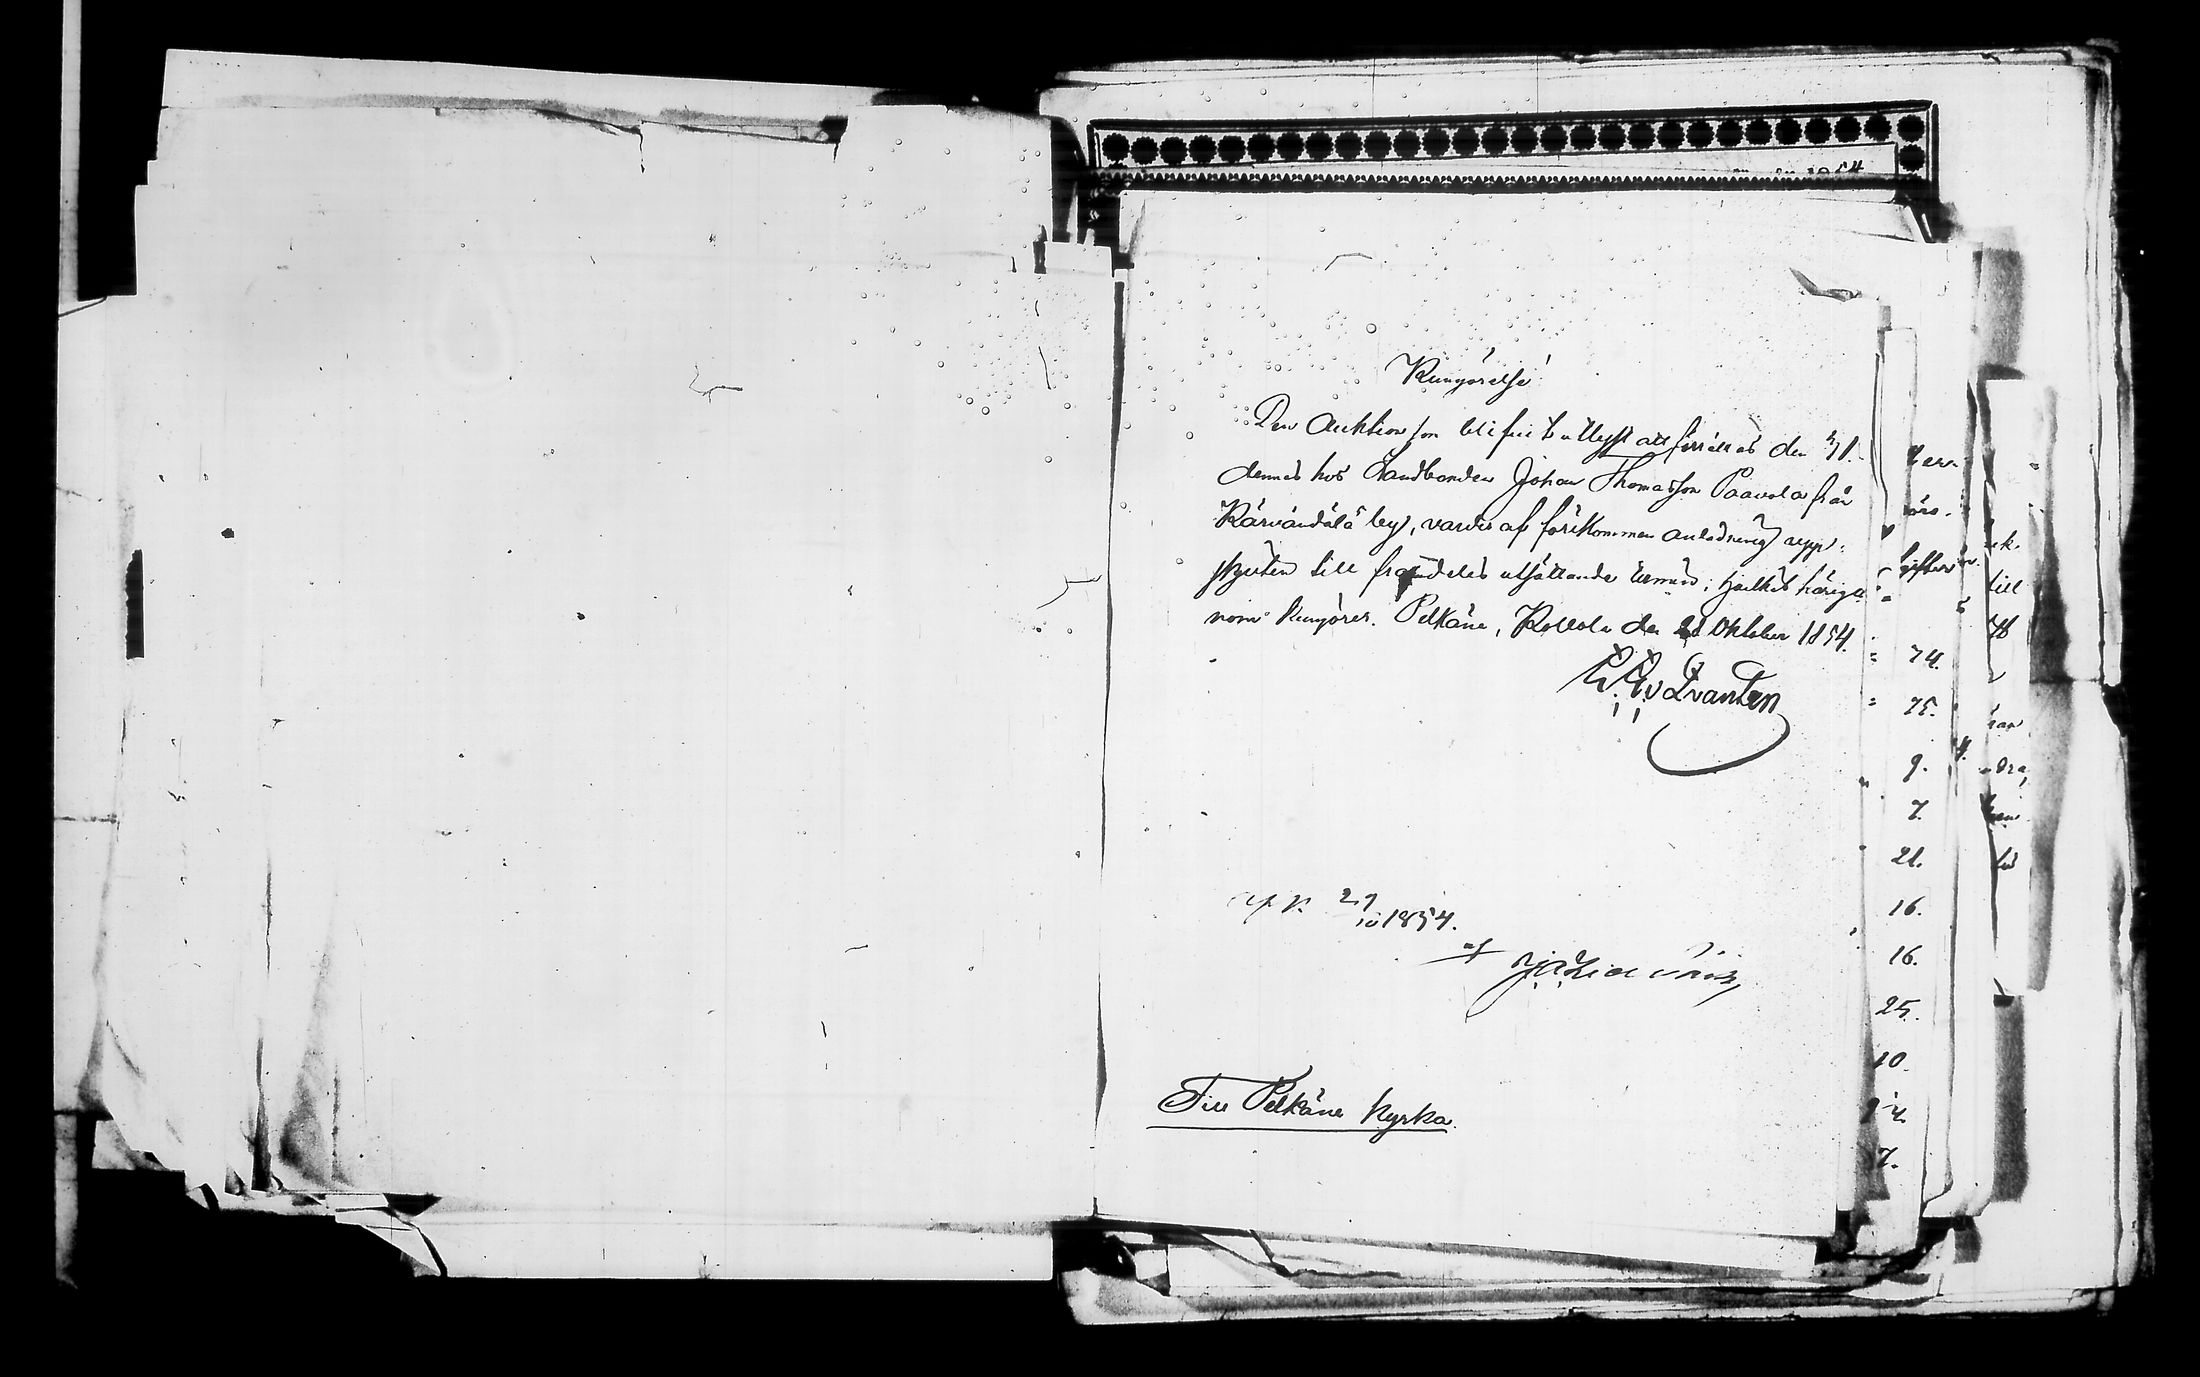 Kungörelse!
Den Auktion som blifvit utlyst att förrättas den 31.
dennes hos Landbonden Johan Thomasson Paavola från
Kärväntälä by, varder af förekommen anledning upp-
skjuten till framdeles utsättande termin; hvilket härige-
nom kungöres. Pelkäne, Rollola den Oktober 1854.
v Qvanten
upp. 29/10 1854.
af
Till Pelkäne Kyrka.
till
74.
75.
9.
7.
21.
16.
16.
25.
10.
7.